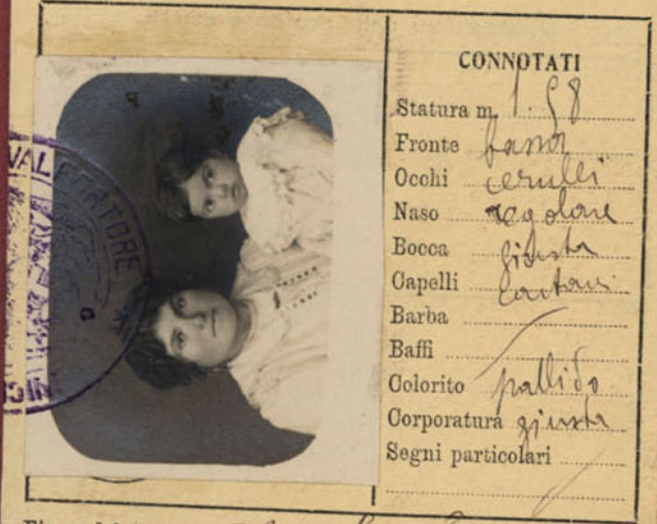 CONNOTATI
Statura m. 1.58
Fronte bassa
Occhi cerulei
Naso regolare
Bocca giusta
Capelli castani
Barba
Baffi
Colorito pallido
Corporatura giusta
Segni particolari